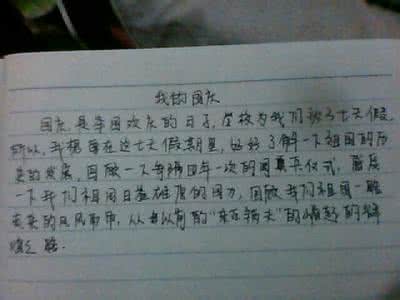 我的国庆
国庆是举国欢庆的日子,学校为我们放了七天假,
所以,我想要在这七天假期里,好好了解一下祖国的历
史的发展,回顾一下每隔四年一次的国真乐仪式,面庆
一下我们祖国日益雄厚的国力,回顾我们祖国一路
走来的风风雨雨,从以前的“东在病夫”的崛起的辉
煌之路.